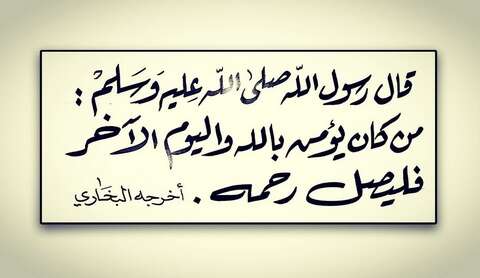 قال رسول اللّه صلىٰ اللّه عليه وَسَلمْ :
من كان يؤمن بالله واليوم الآخر
فليصل رحمه . أخرجه البخَاري